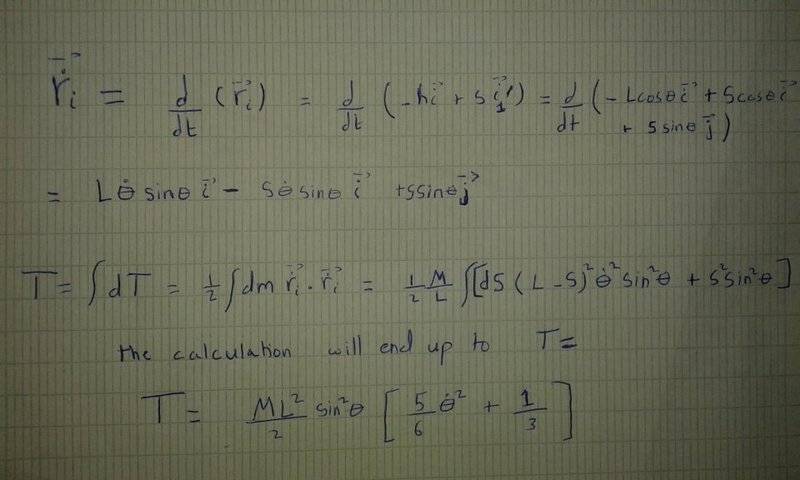 ṙ⃗ᵢ = d/dt (r⃗ᵢ) = d/dt (-h i⃗ + s i⃗₁') = d/dt (-Lcosθ i⃗ + Scosθ i⃗
+ s sinθ j⃗)
= Lθ̇ sinθ i⃗ - sθ̇ sinθ i⃗ + s sinθ j⃗
T = ∫dT = 1/2 ∫dm ṙ⃗ᵢ . ṙ⃗ᵢ = 1/2 M/L ∫[dS (L-S)² θ̇² sin²θ + s² sin²θ]
the calculation will end up to T=
T = ML²/2 sin²θ [5/6 θ̇² + 1/3]